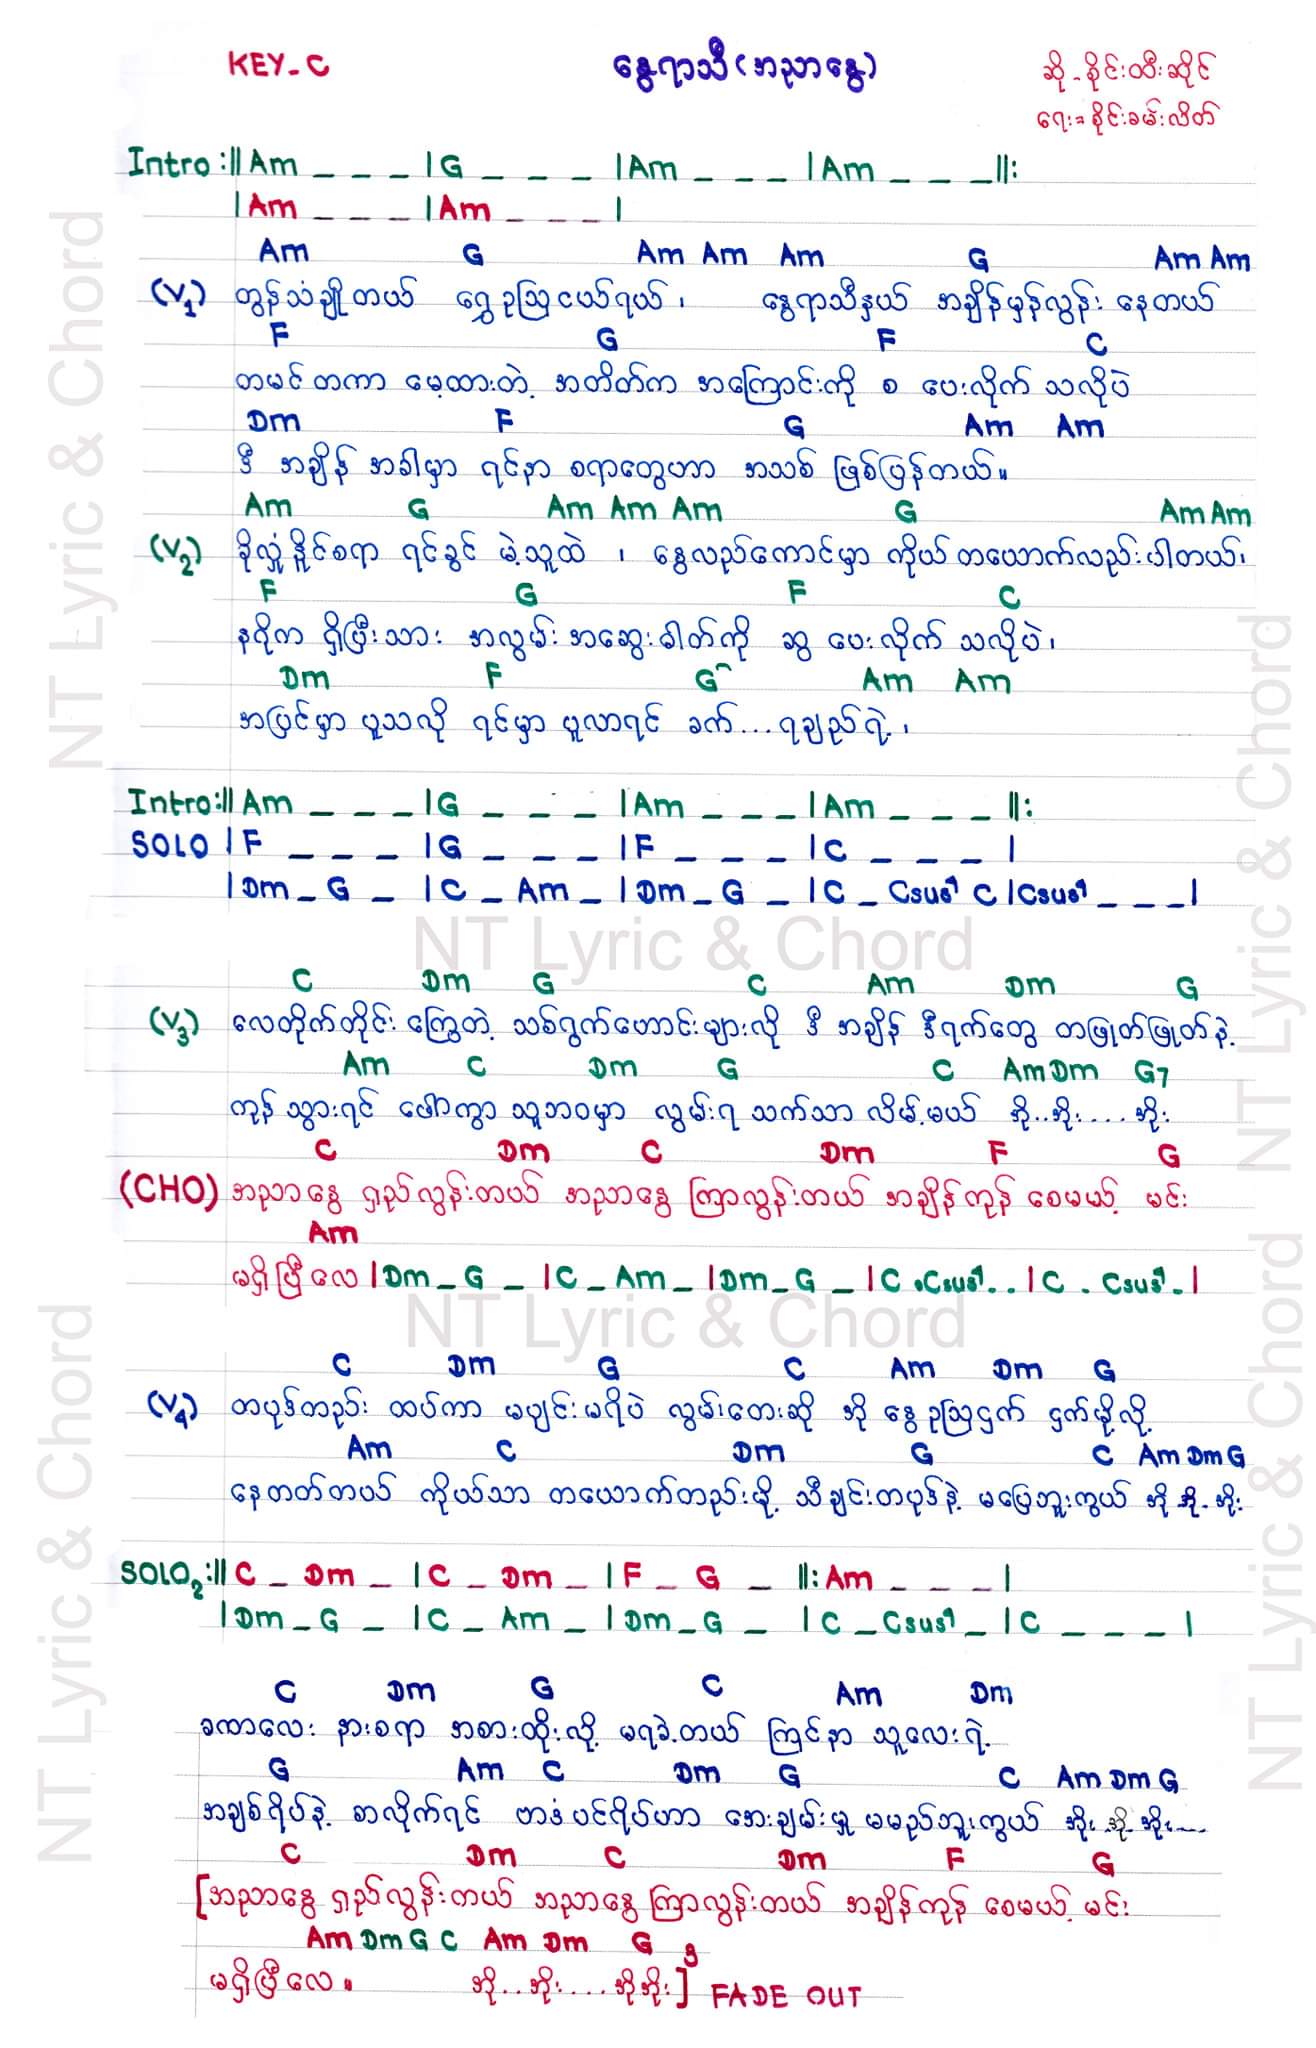 KEY-C
နွေရာသီ (အညာနွေ)
ဆို - စိုင်းထီးဆိုင်
ရေး = စိုင်းခမ်းလိတ်
Intro :|| Am _ _ _ | G _ _ _ | Am _ _ _ | Am _ _ _ ||:
| Am _ _ _ | Am _ _ _ |
Am G Am Am Am G Am Am
(V1) တွန်သံချိုတယ် ရွှေဥဩငယ်ရယ် ၊ နွေရာသီနှယ် အချိန်မှန်လွန်း နေတယ်
F G F C
တမင်တကာ မေ့ထားတဲ့ အတိတ်က အကြောင်းကို စ ပေးလိုက် သလိုပဲ
Dm F G Am Am
ဒီ အချိန် အခါမှာ ရင်နာ စရာတွေဟာ အသစ် ဖြစ်ပြန်တယ်။
Am G Am Am Am G Am Am
(V2) ခိုလှုံနိုင်စရာ ရင်ခွင် မဲ့သူထဲ ၊ နွေလည်ကောင်မှာ ကိုယ် တယောက်လည်းပါတယ်၊
F G F C
နဂိုက ရှိပြီးသား အလွမ်း အဆွေးဓါတ်ကို ဆွ ပေးလိုက် သလိုပဲ၊
Dm F G Am Am
အပြင်မှာ ပူသလို ရင်မှာ ပူလာရင် ခက်...ရချည်ရဲ့ ၊
Intro :|| Am _ _ _ | G _ _ _ | Am _ _ _ | Am _ _ _ ||:
SOLO | F _ _ _ | G _ _ _ | F _ _ _ | C _ _ _ |
| Dm _ G _ | C _ Am _ | Dm _ G _ | C _ Csus4 C | Csus4 _ _ _ |
NT Lyric & Chord
C Dm G C Am Dm G
(V3) လေတိုက်တိုင်း ကြွေတဲ့ သစ်ရွက်ဟောင်းများလို ဒီ အချိန် ဒီရက်တွေ တဖြုတ်ဖြုတ်နဲ့
Am C Dm G C Am Dm G7
ကုန် သွားရင် ပေါ့ကွာ သူ့ဘဝမှာ လွမ်းရ သက်သာ လိမ့်မယ် အို..အိုး....အိုး
C Dm C Dm F G
(CHO) အညာနွေ ရှည်လွန်းတယ် အညာနွေ ကြာလွန်းတယ် အချိန်ကုန် စေမယ့် မင်း
Am
မရှိပြီလေ | Dm _ G _ | C _ Am _ | Dm _ G _ | C . Csus4 . . | C . Csus4 . |
NT Lyric & Chord
C Dm G C Am Dm G
(V4) တပုဒ်တည်း ထပ်ကာ မပျင်းမရိပဲ လွမ်းတေးဆို အို နွေဥဩငှက် ငှက်မို့လို့
Am C Dm G C Am Dm G
နေတတ်တယ် ကိုယ်သာ တယောက်တည်းမို့ သီချင်းတပုဒ်နဲ့ မပြေဘူးကွယ် အို အို. အိုး
SOLO2 :|| C _ Dm _ | C _ Dm _ | F _ G _ ||: Am _ _ _ |
| Dm _ G _ | C _ Am _ | Dm _ G _ | C _ Csus4 _ | C _ _ _ |
C Dm G C Am Dm
ခဏလေး နားစရာ အစားထိုးလို့ မရခဲ့တယ် ကြင်နာ သူလေးရဲ့
G Am C Dm G C Am Dm G
အချစ်ရိပ်နဲ့ စာလိုက်ရင် ဗာဒံပင်ရိပ်ဟာ အေးချမ်းမှု မမည်ဘူးကွယ် အိုး..အို. အိုး....
C Dm C Dm F G
[အညာနွေ ရှည်လွန်းတယ် အညာနွေ ကြာလွန်းတယ် အချိန်ကုန် စေမယ့် မင်း
Am Dm G C Am Dm G
မရှိပြီလေ ။ အို..အိုး....အိုအိုး]3 FADE OUT
NT Lyric & Chord
NT Lyric & Chord
NT Lyric & Chord
NT Lyric & Chord